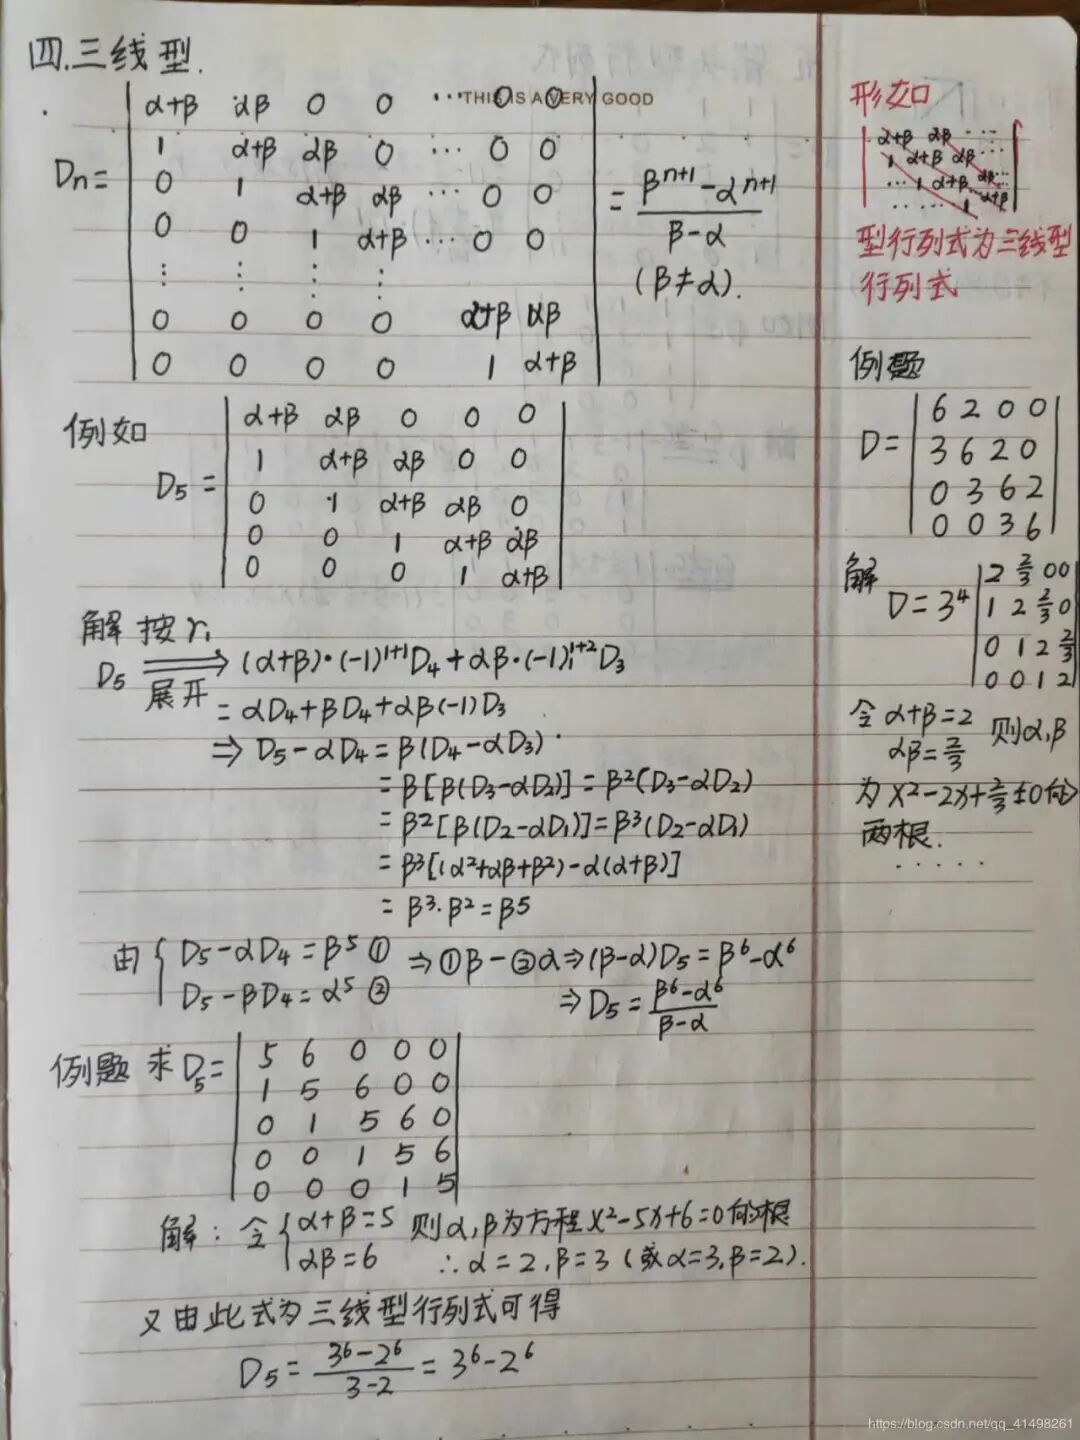 四.三线型.
THIS IS A VERY GOOD
α+β αβ 0 0 ⋯ 0 0
1 α+β αβ 0 ⋯ 0 0
Dn= 0 1 α+β αβ ⋯ 0 0 = (β^(n+1)-α^(n+1))/(β-α)
0 0 1 α+β ⋯ 0 0
⋮ ⋮ ⋮ ⋮ (β≠α).
0 0 0 0 α+β αβ
0 0 0 0 1 α+β
例如
α+β αβ 0 0 0
1 α+β αβ 0 0
D5= 0 1 α+β αβ 0
0 0 1 α+β αβ
0 0 0 1 α+β
解 按r1
D5 ⟹ (α+β)·(-1)^(1+1)D4+αβ·(-1)^(1+2)D3
展开
=αD4+βD4+αβ(-1)D3
⇒ D5-αD4=β(D4-αD3)
=β[β(D3-αD2)]=β²(D3-αD2)
=β²[β(D2-αD1)]=β³(D2-αD1)
=β³[(α²+αβ+β²)-α(α+β)]
=β³·β²=β⁵
由 { D5-αD4=β⁵ ① ⇒①β-②α⇒(β-α)D5=β⁶-α⁶
D5-βD4=α⁵ ② ⇒D5=(β⁶-α⁶)/(β-α)
例题 求D5=
5 6 0 0 0
1 5 6 0 0
0 1 5 6 0
0 0 1 5 6
0 0 0 1 5
解:令 { α+β=5 则α,β为方程x²-5x+6=0的根
αβ=6 ∴α=2,β=3(或α=3,β=2).
又由此式为三线型行列式可得
D5=(3⁶-2⁶)/(3-2)=3⁶-2⁶
形如
α+β αβ ⋯
1 α+β αβ ⋯
⋯ 1 α+β αβ
⋯ 1 α+β
型行列式为三线型
行列式
例题
6 2 0 0
D= 3 6 2 0
0 3 6 2
0 0 3 6
解
2 2/3 0 0
D=3⁴ 1 2 2/3 0
0 1 2 2/3
0 0 1 2
令 α+β=2
αβ=2/3 则α,β
为x²-2x+2/3=0的
两根.
.....
https://blog.csdn.net/qq_41498261